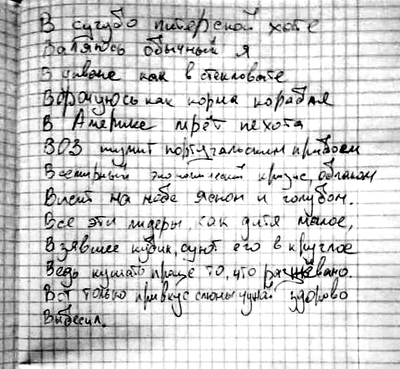 В сугубо питерской хате
Валяюсь обычный я
В саване как в стекловате
Ворочуюсь как корма корабля
В Америке прёт пехота
ВОЗ шумит португальским прибоем
Всемирный экономический кризис, облаком
Висит на небе ясном и голубом.
Все эти лидеры, как дитя малое,
Взявшее кубик, суют его в круглое
Ведь кушать проще то, что разжёвано.
Вот только привкус слюны чужой здорово
Выбесил.